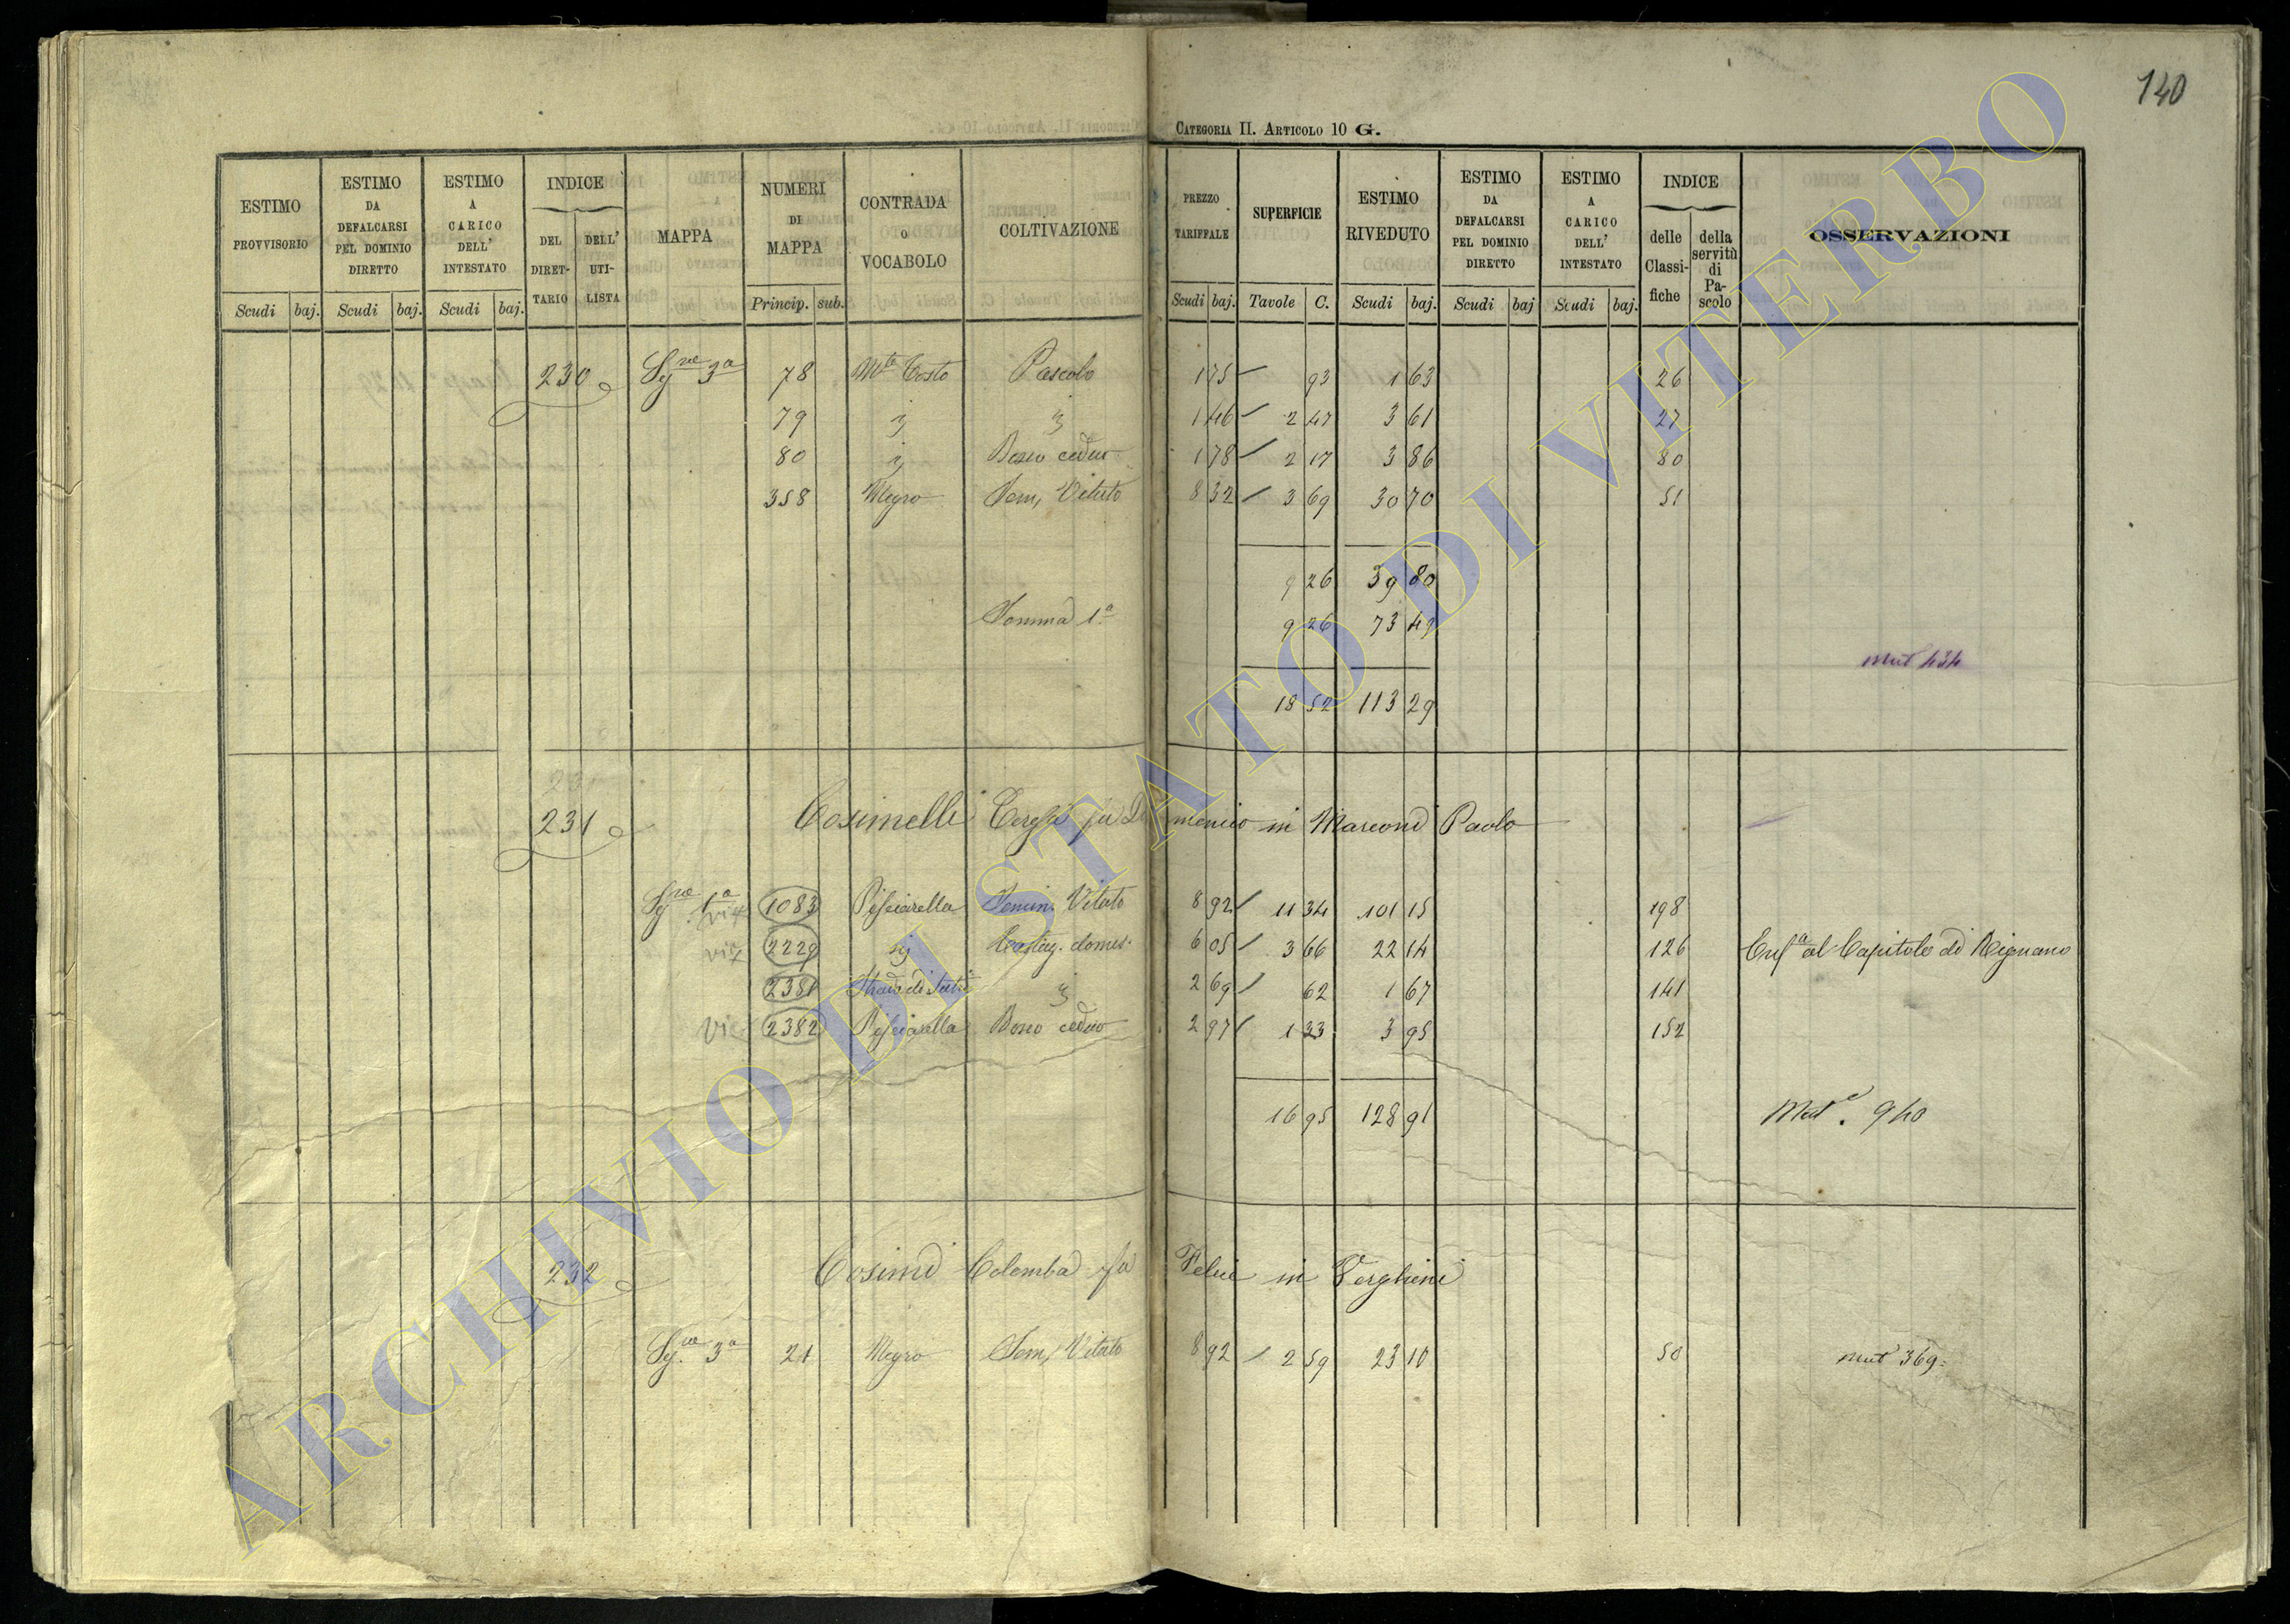 140
CATEGORIA II. ARTICOLO 10 G.
ESTIMO PROVVISORIO
ESTIMO DA DEFALCARSI PEL DOMINIO DIRETTO
ESTIMO A CARICO DELL' INTESTATO
INDICE
DEL DIRET-TARIO
DELL' UTI-LISTA
MAPPA
NUMERI DI MAPPA
CONTRADA O VOCABOLO
COLTIVAZIONE
PREZZO TARIFFALE
SUPERFICIE
ESTIMO RIVEDUTO
ESTIMO DA DEFALCARSI PEL DOMINIO DIRETTO
ESTIMO A CARICO DELL' INTESTATO
INDICE
delle Classi-fiche
della servitù di Pa-scolo
OSSERVAZIONI
Scudi baj. Scudi baj. Scudi baj. Princip. sub. Scudi baj. Tavole C. Scudi baj. Scudi baj Scudi baj.
230 Sgne 3a 78 Mte Costo Pascolo 1 75 93 1 63 26
79 " " 1 46 2 47 3 61 27
80 " Bosco ceduo 1 78 2 17 3 86 80
358 Megro Sem, Vitato 8 32 3 69 30 70 51
9 26 39 80
Somma 1a 9 26 73 49
mut 434
18 52 113 29
231 Cosimelli fu Domenico in Marconi Paolo
Sgne 1a 1083 Pisciarella Semin. Vitato 8 92 11 34 101 15 198
2229 " Castag. domes. 6 05 3 66 22 14 126 Enfa al Capitolo di Rignano
2381 Strada di Sutri " 2 69 62 1 67 141
2382 Pisciarella Bosco ceduo 2 97 1 33 3 95 152
16 95 128 91 Mute. 940
232 Cosimi Colomba fu Felice in Verghini
Sgne 3a 21 Megro Sem, Vitato 8 92 2 59 23 10 50 mut 369=
ARCHIVIO DI STATO DI VITERBO